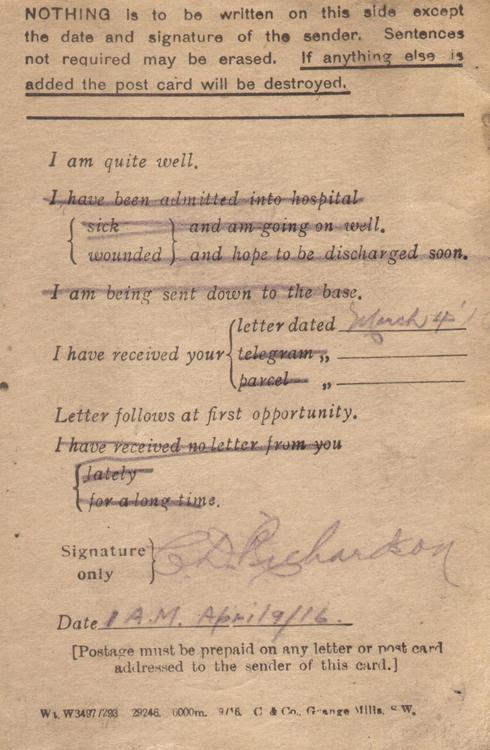 NOTHING is to be written on this side except
the date and signature of the sender. Sentences
not required may be erased. If anything else is
added the post card will be destroyed.
I am quite well.
I have been admitted into hospital
sick and am going on well.
wounded and hope to be discharged soon.
I am being sent down to the base.
letter dated March 4
I have received your telegram „
parcel „
Letter follows at first opportunity.
I have received no letter from you
lately
for a long time.
Signature only C. D. Richardson
Date 1 A.M. April 9/16.
[Postage must be prepaid on any letter or post card
addressed to the sender of this card.]
Wt. W3497/293 29246. 6000m. 9/16. C & Co., Grange Mills, S.W.